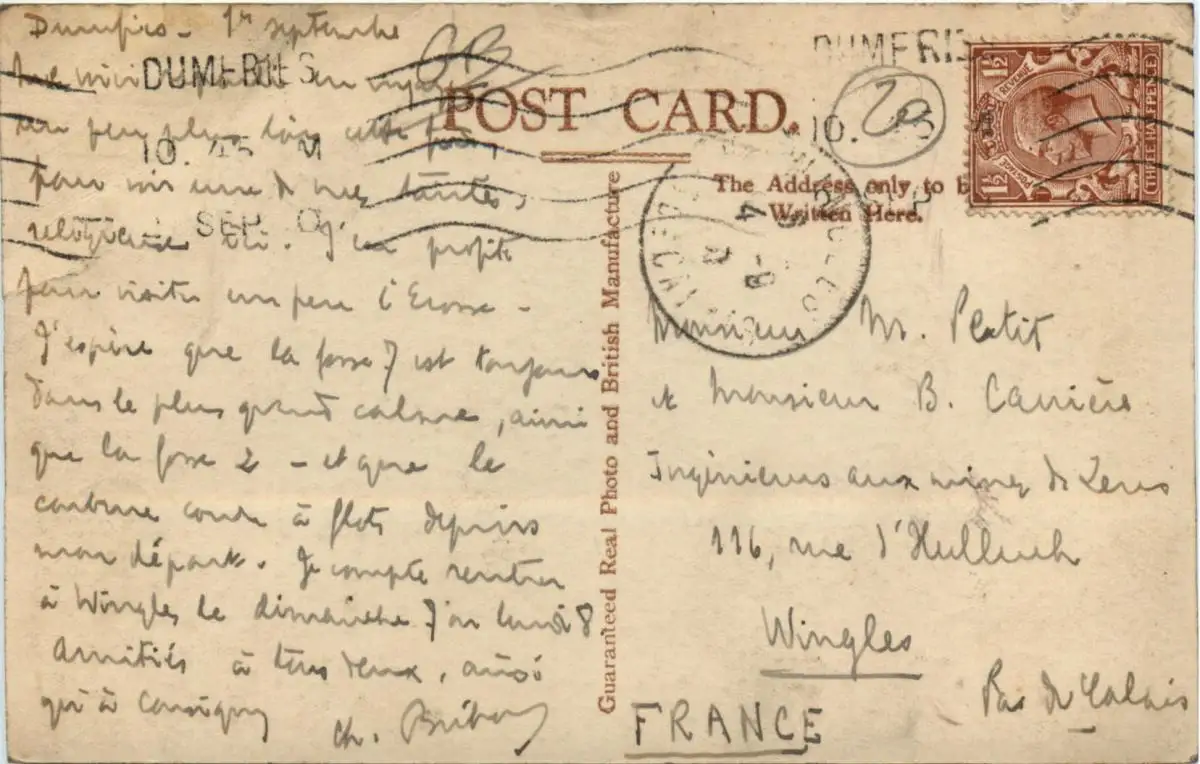 Dumfries - 1er septembre
Me voici parti en voyage
un peu plus loin cette fois,
pour voir une de mes tantes,
religieuse ici. J'en profite
pour visiter un peu l'Ecosse -
J'espère que la fosse 7 est toujours
dans le plus grand calme, ainsi
que la fosse 2 - et que le
carbone coule à flots depuis
mon départ. Je compte rentrer
à Wingles le dimanche 7 ou lundi 8
Amitiés à tous deux, ainsi
qu'à
Ch.
DUMFRIES
10.45 M
1 SEP
POST CARD.
The Address only to be
Written Here.
Guaranteed Real Photo and British Manufacture
DUMFRIES
10.
20
POSTAGE
REVENUE
1½
1½
THREE HALFPENCE
Monsieur M. Platit
et Monsieur B. Carrière
Ingénieurs aux mines de Lens
116, rue d'Hulluch
Wingles
Pas de Calais
FRANCE